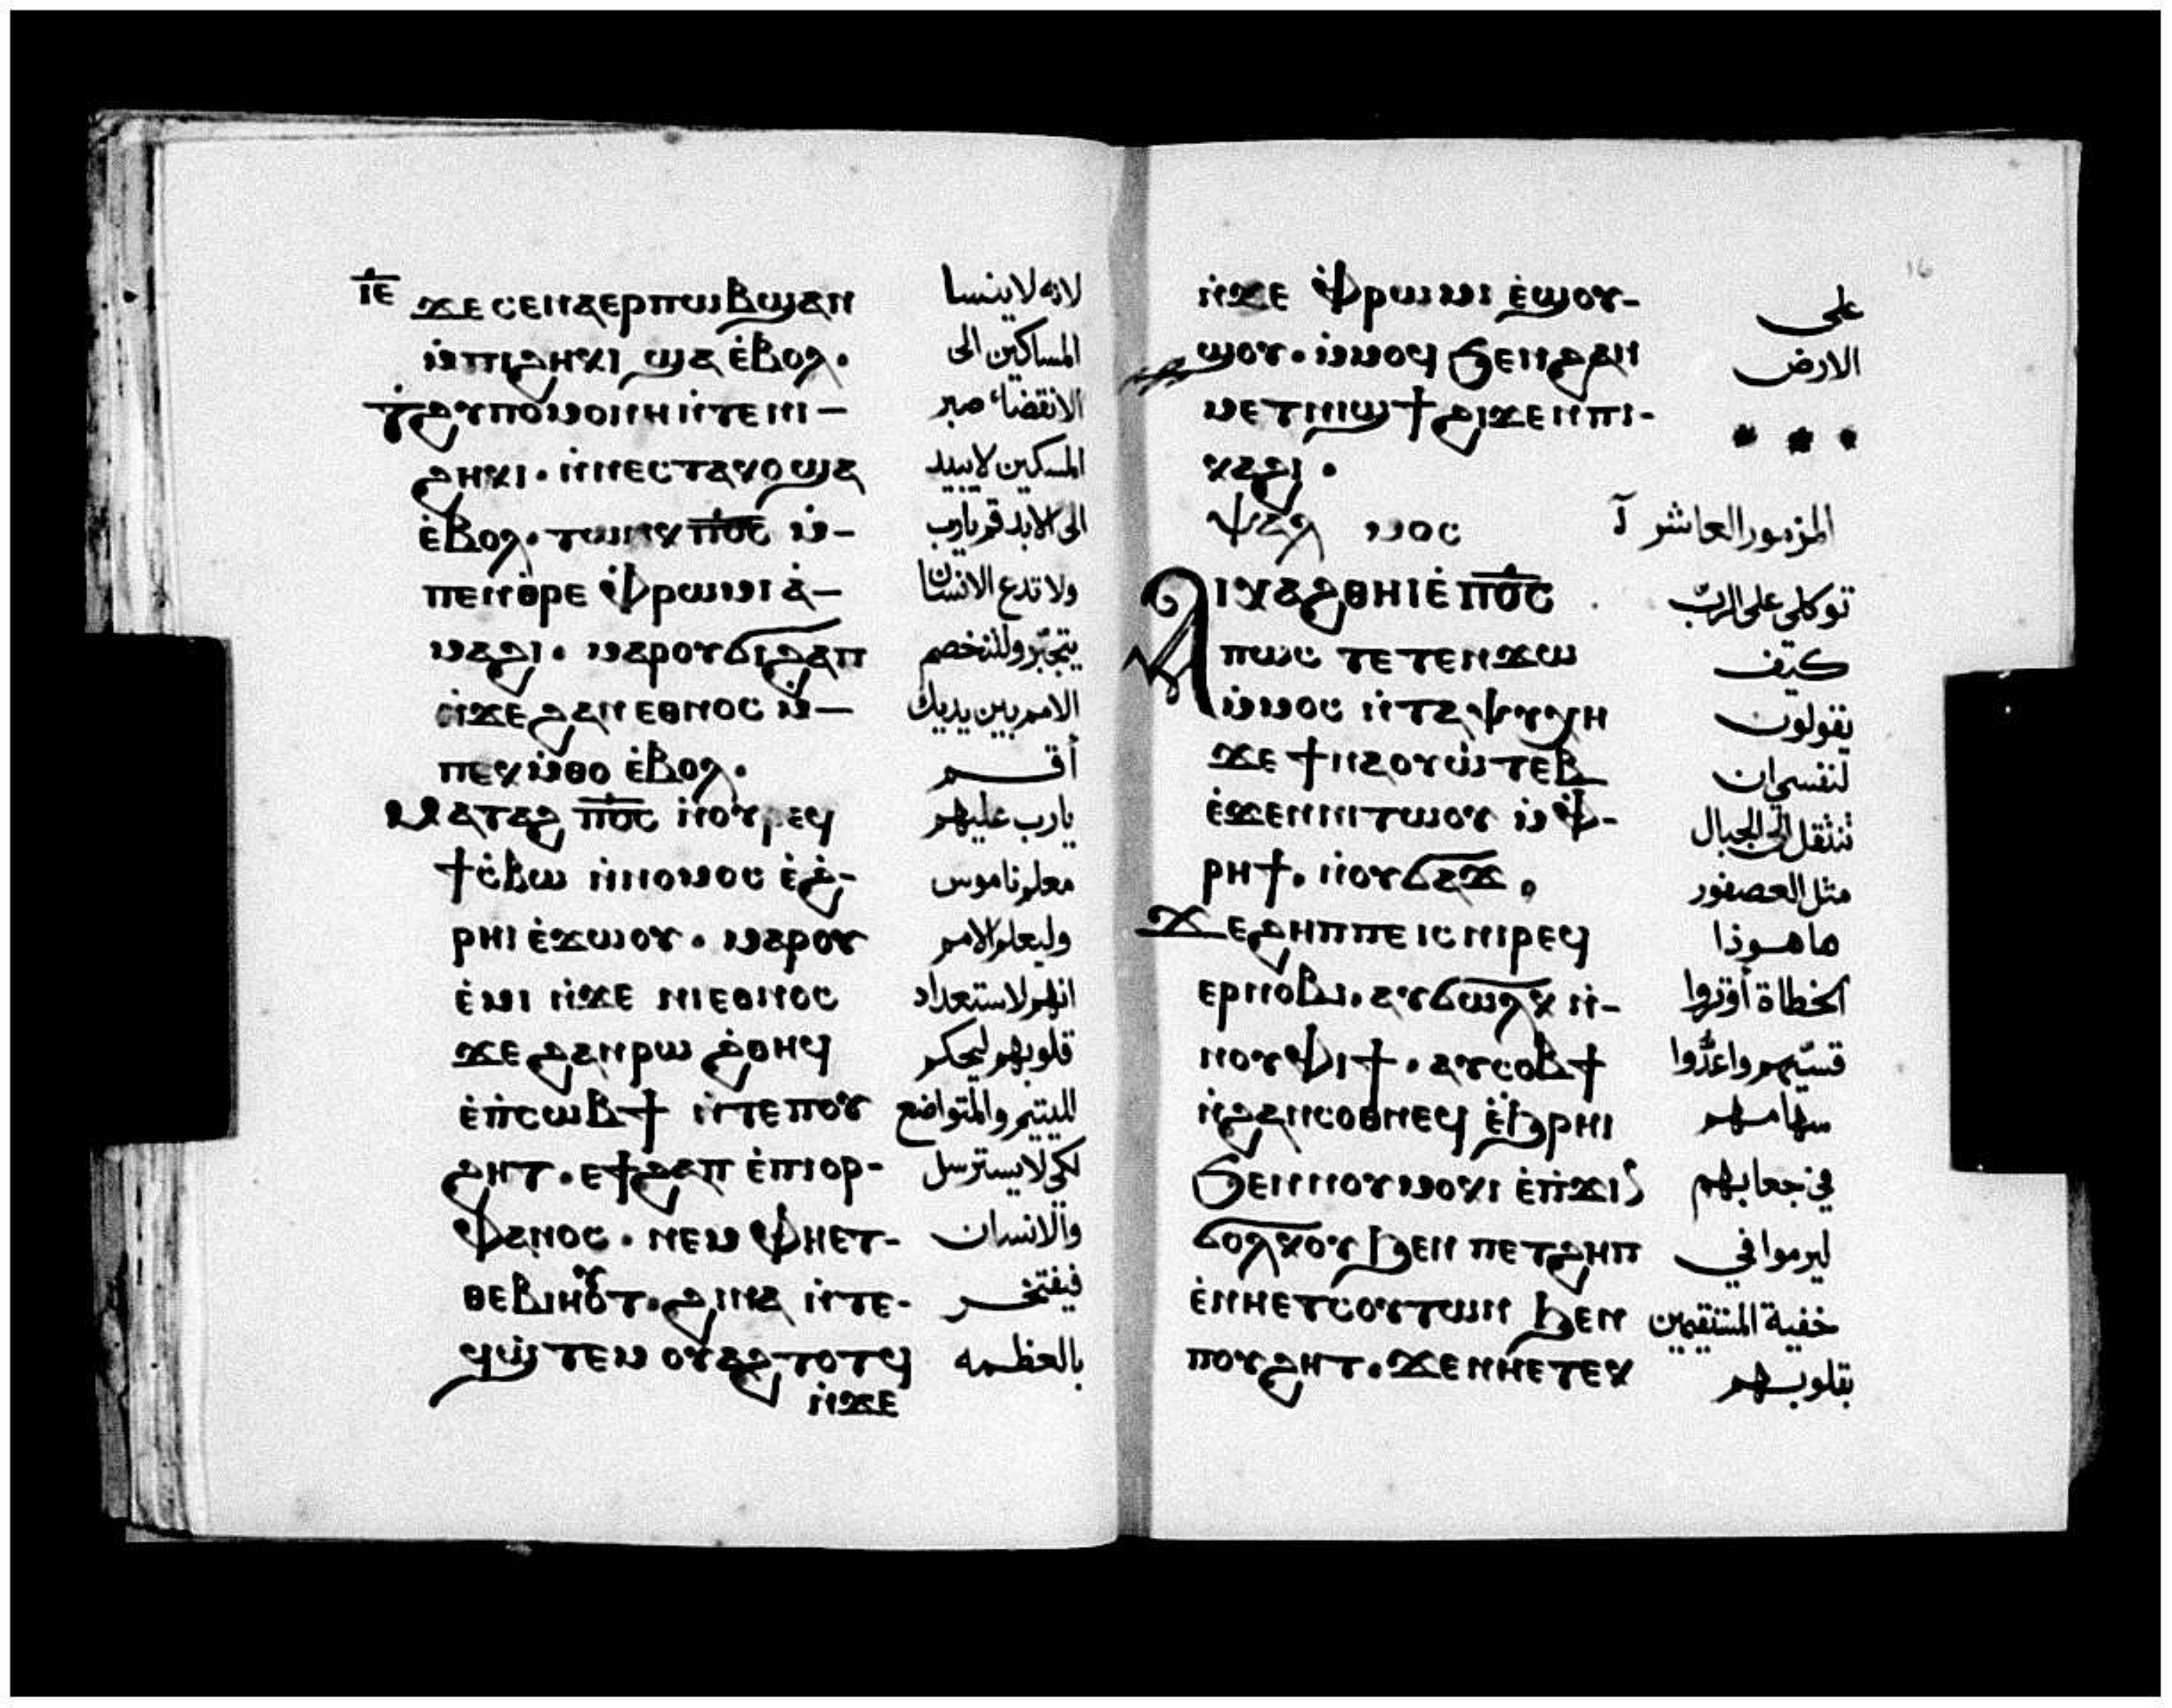 ⲓ̅ⲉ̅ ϫⲉ ⲥⲉⲛⲁⲉⲣⲡⲱⲃϣ ⲁⲛ
ⲙ̀ⲡⲓϩⲏⲕⲓ ϣⲁ ⲉ̀ⲃⲟⲗ.
ϯϩⲩⲡⲟⲙⲟⲛⲏ ⲛ̀ⲧⲉ ⲛⲓ-
ϩⲏⲕⲓ. ⲛ̀ⲛⲉⲥⲧⲁⲕⲟ ϣⲁ
ⲉ̀ⲃⲟⲗ. ⲧⲱⲛⲕ ⲡ̅ⲟ̅ⲥ̅ ⲙ̀-
ⲡⲉⲛⲑⲣⲉ ⲫ̀ⲣⲱⲙⲓ ⲁ̀-
ⲙⲁϩⲓ. ⲙⲁⲣⲟⲩϭⲓϩⲁⲡ
ⲛ̀ϫⲉ ϩⲁⲛⲉⲑⲛⲟⲥ ⲙ̀-
ⲡⲉⲕⲙ̀ⲑⲟ ⲉ̀ⲃⲟⲗ.
ⲙⲁⲧⲁϩ ⲡ̅ⲟ̅ⲥ̅ ⲛ̀ⲟⲩⲣⲉϥ
ϯⲥ̀ⲃⲱ ⲛ̀ⲛⲟⲙⲟⲥ ⲉ̀ϩ̀-
ⲣⲏⲓ ⲉ̀ϫⲱⲟⲩ. ⲙⲁⲣⲟⲩ
ⲉ̀ⲙⲓ ⲛ̀ϫⲉ ⲛⲓⲉⲑⲛⲟⲥ
ϫⲉ ϩⲁⲛⲣⲱ ϩ̀ⲑⲏϥ
ⲉ̀ⲡ̀ⲥⲱⲃϯ ⲛ̀ⲧⲉ ⲡⲟⲩ
ϩⲏⲧ. ⲉϯϩⲁⲡ ⲉ̀ⲡⲓⲟⲣ-
ⲫⲁⲛⲟⲥ. ⲛⲉⲙ ⲫⲏⲉⲧ-
ⲑⲉⲃⲓⲏⲟⲩⲧ. ϩⲓⲛⲁ ⲛ̀ⲧⲉ-
ϥϣ̀ⲧⲉⲙ ⲟⲩⲁϩⲧⲟⲧϥ
ⲛ̀ϫⲉ
لانه لا ينسا
المساكين الى
الانقضاء صبر
المسكين لا يبيد
الى الابد قم يارب
ولا تدع الانسان
يتجبّر ولتخصم
الامم بين يديك
أقم
يارب عليهم
معلم ناموس
وليعلم الامم
انهم لاستعداد
قلوبهم ليحكم
لليتيم والمتواضع
لكي لا يسترسل
والانسان
فيفتخر
بالعظمه
16
ⲛ̀ϫⲉ ⲫ̀ⲣⲱⲙⲓ ⲉ̀ϣⲟⲩ-
ϣⲟⲩ. ⲙ̀ⲙⲟϥ ϧⲉⲛ ϩⲁⲛ
ⲙⲉⲧⲛⲓϣϯ ϩⲓϫⲉⲛ ⲡⲓ-
ⲕⲁϩⲓ.
ⲯⲁⲗ ⲙⲟⲥ
ⲁⲓⲭⲁϩⲑⲏⲓ ⲉ̀ⲡ̅ⲟ̅ⲥ̅
ⲡⲱⲥ ⲧⲉⲧⲉⲛϫⲱ
ⲙ̀ⲙⲟⲥ ⲛ̀ⲧⲁⲯⲩⲭⲏ
ϫⲉ ϯⲛⲁⲟⲩⲱ̀ⲧⲉⲃ
ⲉ̀ϫⲉⲛ ⲛⲓⲧⲱⲟⲩ ⲙ̀ⲫ̀-
ⲣⲏϯ. ⲛ̀ⲟⲩϭⲁϫ.
ϫⲉ ϩⲏⲡⲡⲉ ⲓⲥ ⲛⲓⲣⲉϥ
ⲉⲣⲛⲟⲃⲓ. ⲁⲩϭⲱⲗⲕ ⲛ̀-
ⲛⲟⲩⲫⲓϯ. ⲁⲩⲥⲟⲃϯ
ⲛ̀ϩⲁⲛⲥⲟⲑⲛⲉϥ ⲉ̀ϧⲣⲏⲓ
ϧⲉⲛ ⲛⲟⲩⲙⲟⲕⲓ ⲉ̀ⲡ̀ϫⲓⲛ
ϭⲟⲗⲕⲟⲩ ϧⲉⲛ ⲡⲉⲧϩⲏⲡ
ⲉ̀ⲛⲏⲉⲧⲥⲟⲩⲧⲱⲛ ϧⲉⲛ
ⲡⲟⲩϩⲏⲧ. ϫⲉ ⲛⲏⲉⲧⲉⲕ
على
الارض
المزمور العاشر
توكلي على الربّ
كيف
تقولون
لنفسي ان
تنتقل الى الجبال
مثل العصفور
ها هوذا
الخطاة أوتروا
قسيّهم واعدّوا
سهامهم
في جعابهم
ليرموا في
خفية المستقيمين
بقلوبهم